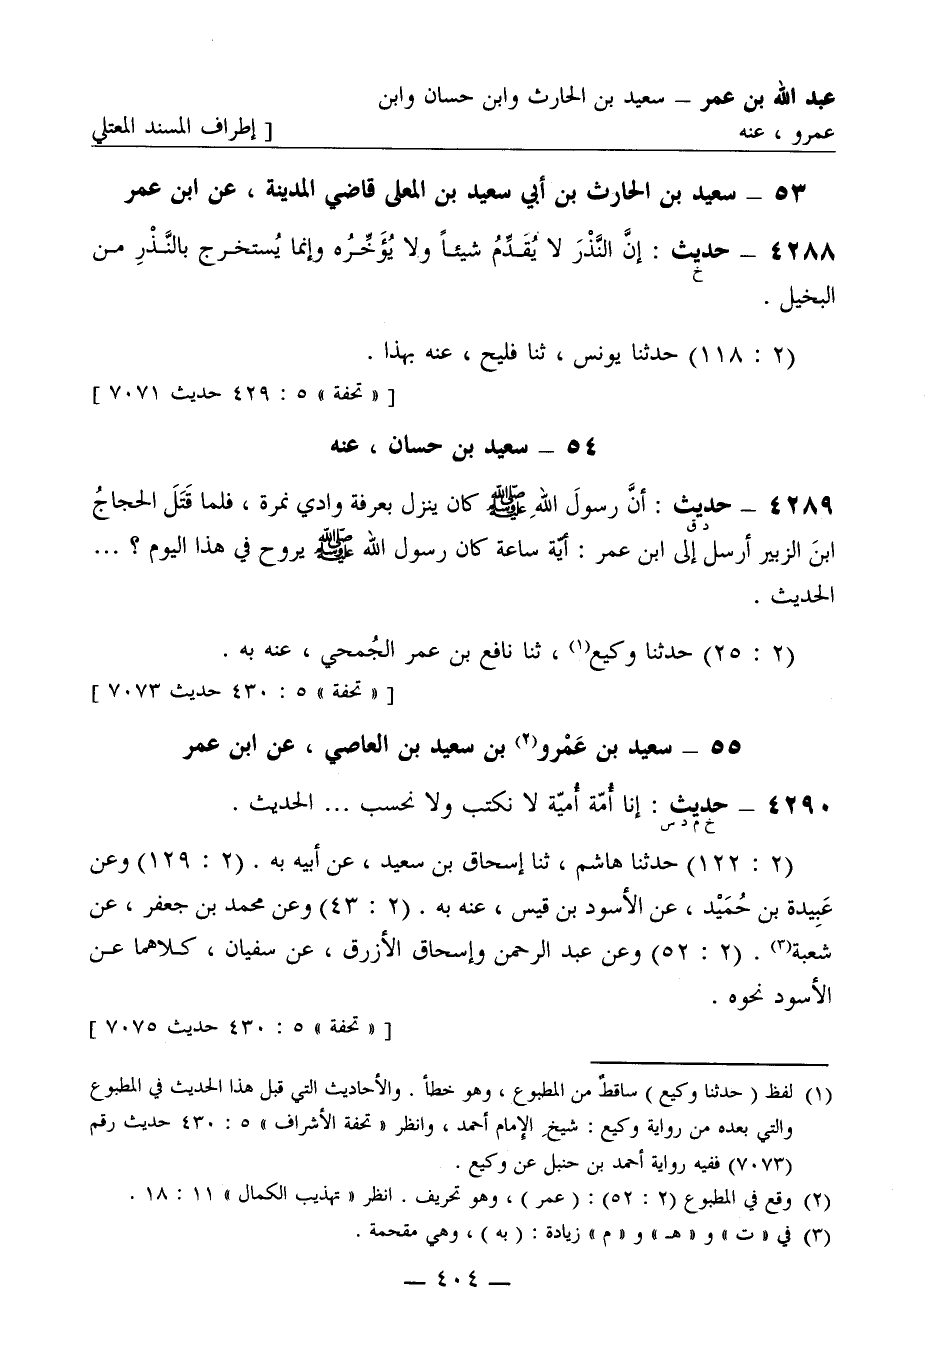 عبد الله بن عمر – سعيد بن الحارث وابن حسان وابن
عمرو ، عنه [ إطراف المسند المعتلي
٥٣ – سعيد بن الحارث بن أبي سعيد بن المعلى قاضي المدينة ، عن ابن عمر
٤٢٨٨ – حديث : إنَّ النَّذْرَ لا يُقَدِّمُ شيئاً ولا يُؤَخِّرُه وإنما يُستخرج بالنَّذْرِ من
خ
البخيل .
(٢ : ١١٨) حدثنا يونس ، ثنا فليح ، عنه بهذا .
[ « تحفة » ٥ : ٤٢٩ حديث ٧٠٧١ ]
٥٤ – سعيد بن حسان ، عنه
٤٢٨٩ – حديث : أنَّ رسولَ اللهِ ﷺ كان ينزل بعرفة وادي نمرة ، فلما قَتَلَ الحجاجُ
د ق
ابنَ الزبير أرسل إلى ابن عمر : أيّة ساعة كان رسول الله ﷺ يروح في هذا اليوم ؟ ...
الحديث .
(٢ : ٢٥) حدثنا وكيع(١) ، ثنا نافع بن عمر الجُمحي ، عنه به .
[ « تحفة » ٥ : ٤٣٠ حديث ٧٠٧٣ ]
٥٥ – سعيد بن عَمْرو(٢) بن سعيد بن العاصي ، عن ابن عمر
٤٢٩٠ – حديث : إنا أُمّة أُميّة لا نكتب ولا نحسب ... الحديث .
خ م د س
(٢ : ١٢٢) حدثنا هاشم ، ثنا إسحاق بن سعيد ، عن أبيه به . (٢ : ١٢٩) وعن
عَبِيدة بن حُمَيْد ، عن الأسود بن قيس ، عنه به . (٢ : ٤٣) وعن محمد بن جعفر ، عن
شعبة(٣) . (٢ : ٥٢) وعن عبد الرحمن وإسحاق الأزرق ، عن سفيان ، كلاهما عن
الأسود نحوه .
[ « تحفة » ٥ : ٤٣٠ حديث ٧٠٧٥ ]
(١) لفظ ( حدثنا وكيع ) ساقطٌ من المطبوع ، وهو خطأ . والأحاديث التي قبل هذا الحديث في المطبوع
والتي بعده من رواية وكيع : شيخ الإمام أحمد ، وانظر « تحفة الأشراف » ٥ : ٤٣٠ حديث رقم
(٧٠٧٣) ففيه رواية أحمد بن حنبل عن وكيع .
(٢) وقع في المطبوع (٢ : ٥٢) : ( عمر ) ، وهو تحريف . انظر « تهذيب الكمال » ١١ : ١٨ .
(٣) في « ت » و « هـ » و « م » زيادة : ( به ) ، وهي مقحمة .
– ٤٠٤ –